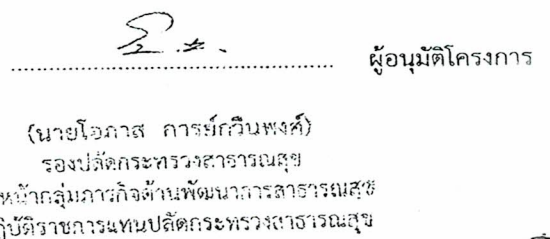 ผู้อนุมัติโครงการ
(นายโอภาส การย์กวินพงศ์)
รองปลัดกระทรวงสาธารณสุข
หน้ากลุ่มภารกิจด้านพัฒนาการสาธารณสุข
ฏิบัติราชการแทนปลัดกระทรวงสาธารณสุข